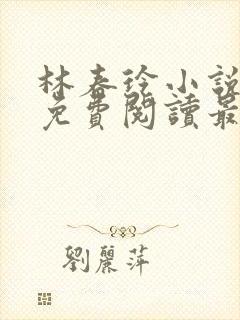 林春徐小說
免費閱讀最
劉麗萍